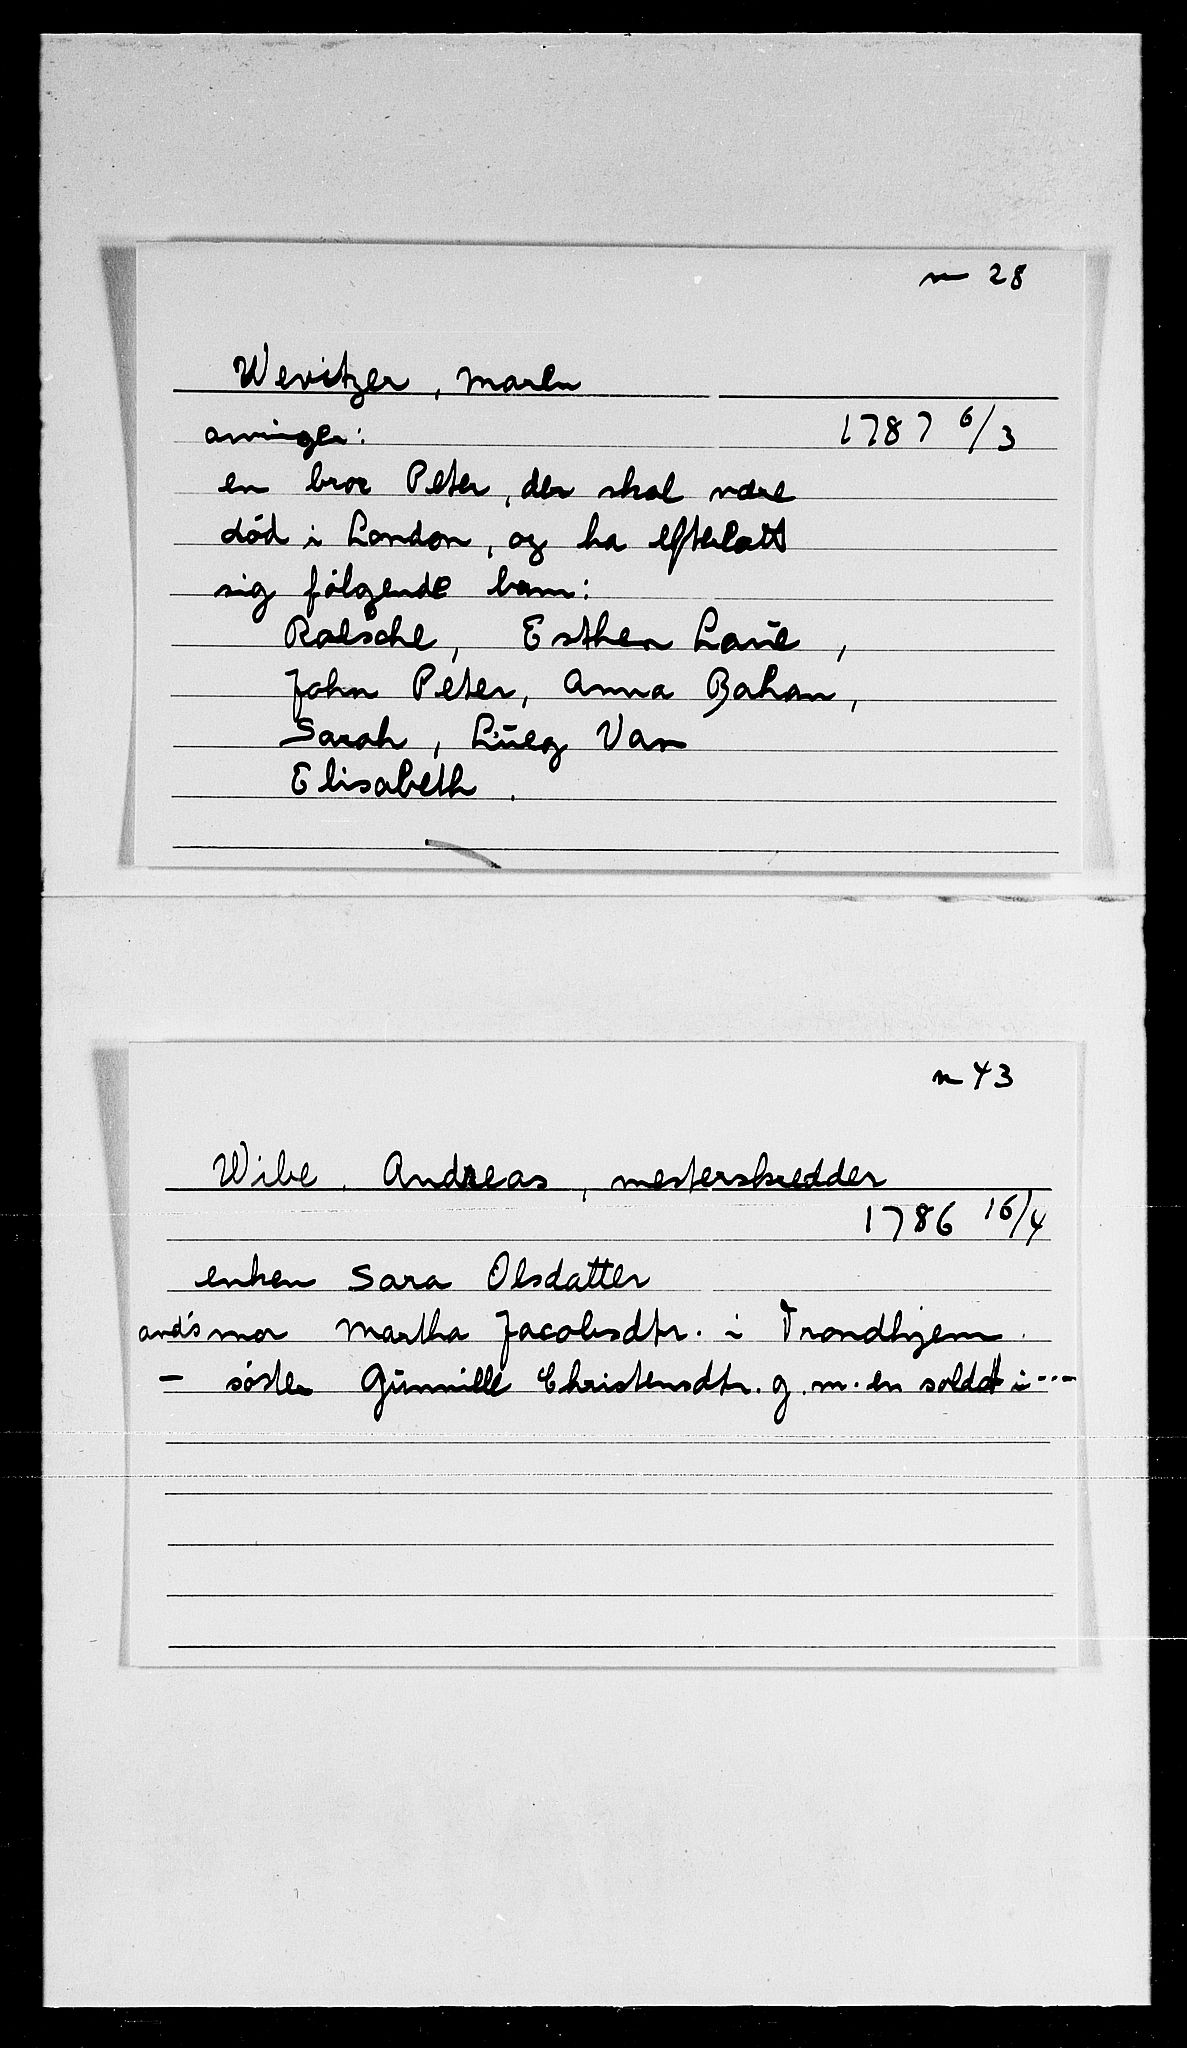 n 28
Wevitzer, Maren
arvinger:
1787 6/3
en bror Peter, der skal være
död i London, og ha efterlatt
sig fölgende barn:
Raesche, Esther Laũe,
John Peter, Anna Bahan,
Sarah, Lũeg Van
Elisabeth.
n 43
Wibe, Andreas, mesterskredder
1786 16/4
enken Sara Olsdatter
and's mor Martha Jacobsdtr. i Trondhjem.
- söster Gũnnille Christensdtr. g. m. en soldat i ---